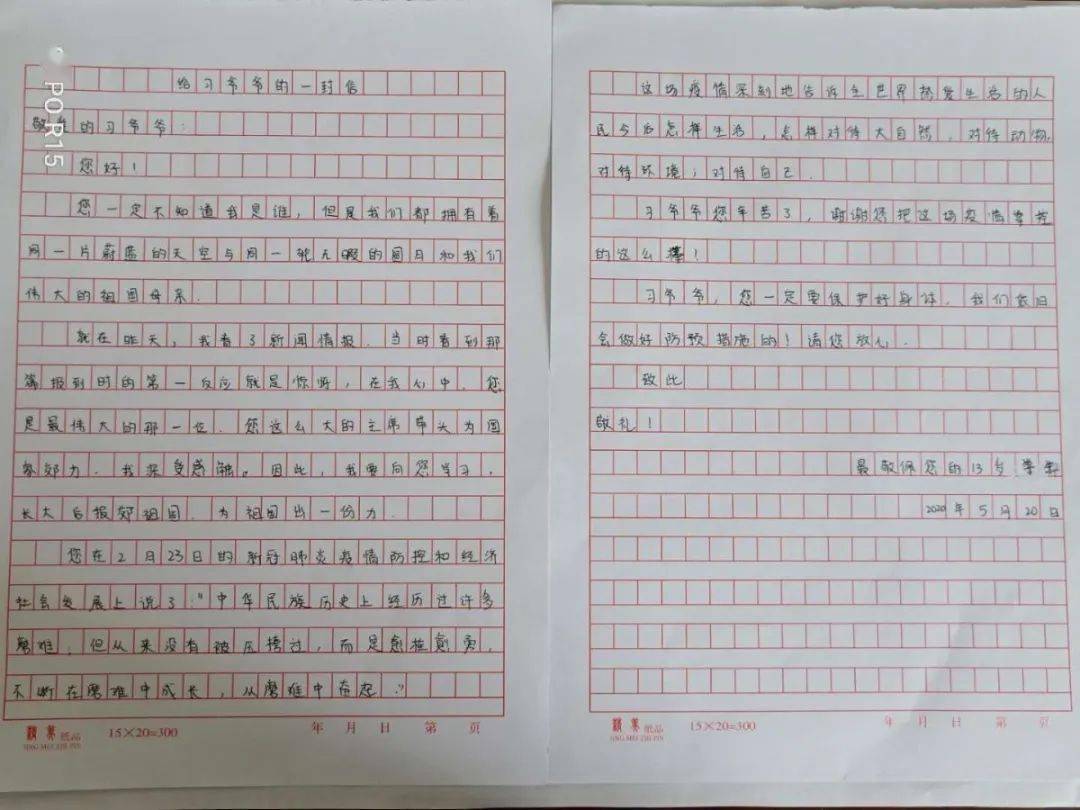 PO R15
给习爷爷的一封信
敬爱的习爷爷:
您好!
您一定不知道我是谁,但是我们都拥有着
同一片蔚蓝的天空与同一轮无暇的圆月和我们
伟大的祖国母亲.
就在昨天,我看了新闻情报.当时看到那
篇报到时的第一反应就是惊呀,在我心中.您
是最伟大的那一位.您这么大的主席带头为国
家効力.我深受感触。因此,我要向您学习,
长大后报効祖国.为祖国出一份力.
您在2月23日的新冠肺炎疫情防控和经济
社会发展上说了:"中华民族历史上经历过许多
磨难,但从来没有被压挎过,而是愈挫愈勇,
不断在磨难中成长,从磨难中奋起."
精美纸品
JING MEI ZHI PIN
15×20=300
年 月 日 第 页
这场疫情深刻地告诉全世界热爱生活的人
民今后怎样生活,怎样对待大自然,对待动物.
对待环境,对待自己.
习爷爷您辛苦了,谢谢您把这场疫情掌控
的这么棒!
习爷爷,您一定要保护好身体.我们依旧
会做好防预措施的!请您放心.
致此
敬礼!
最敬佩您的13岁学
2020年5月20日
精美纸品
JING MEI ZHI PIN
15×20=300
年 月 日 第 页